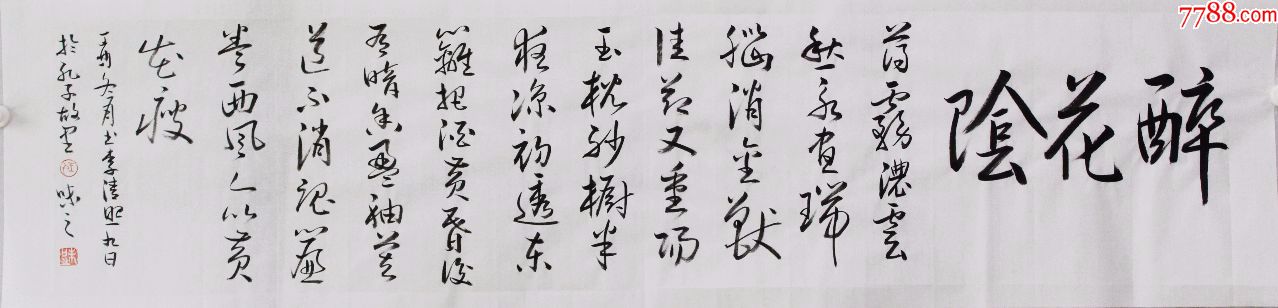 7788.com
醉花陰
薄霧濃雲
愁永晝瑞
腦消金獸
佳節又重陽
玉枕紗櫥半
夜凉初透東
籬把酒黃昏後
有暗香盈袖莫
道不消魂簾
卷西風人似黃
花瘦
丁酉冬月书李清照九日
於孔子故里